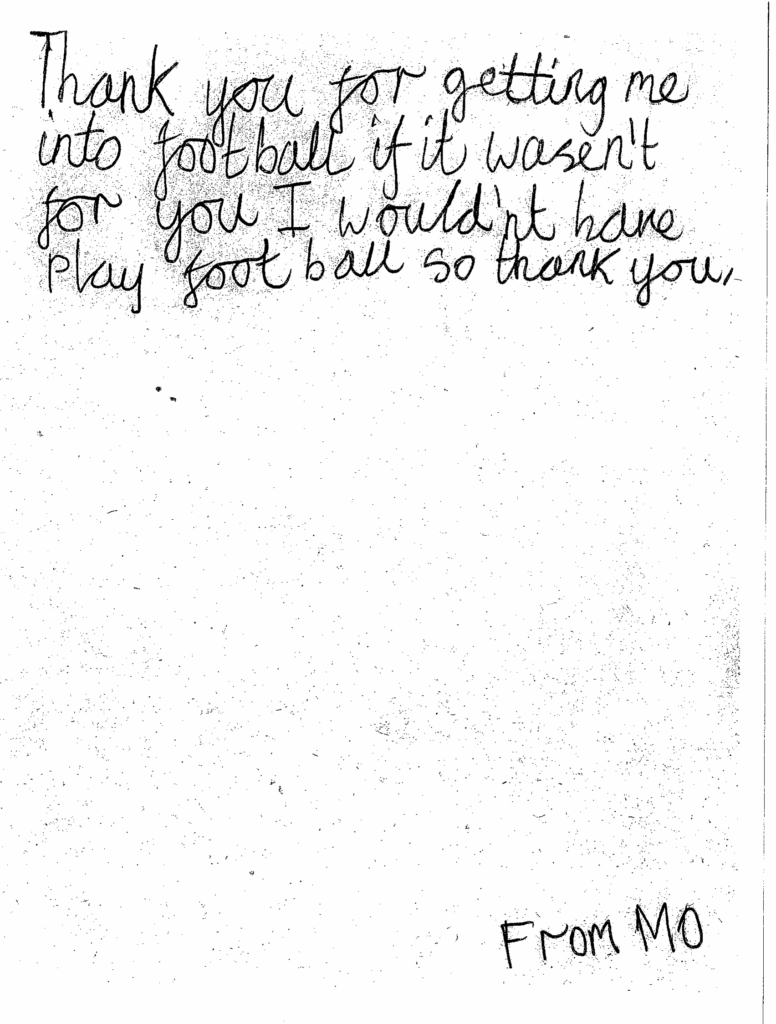 Thank you for getting me
into football if it wasen't
for you I would'nt have
play foot ball so thank you,
From MO